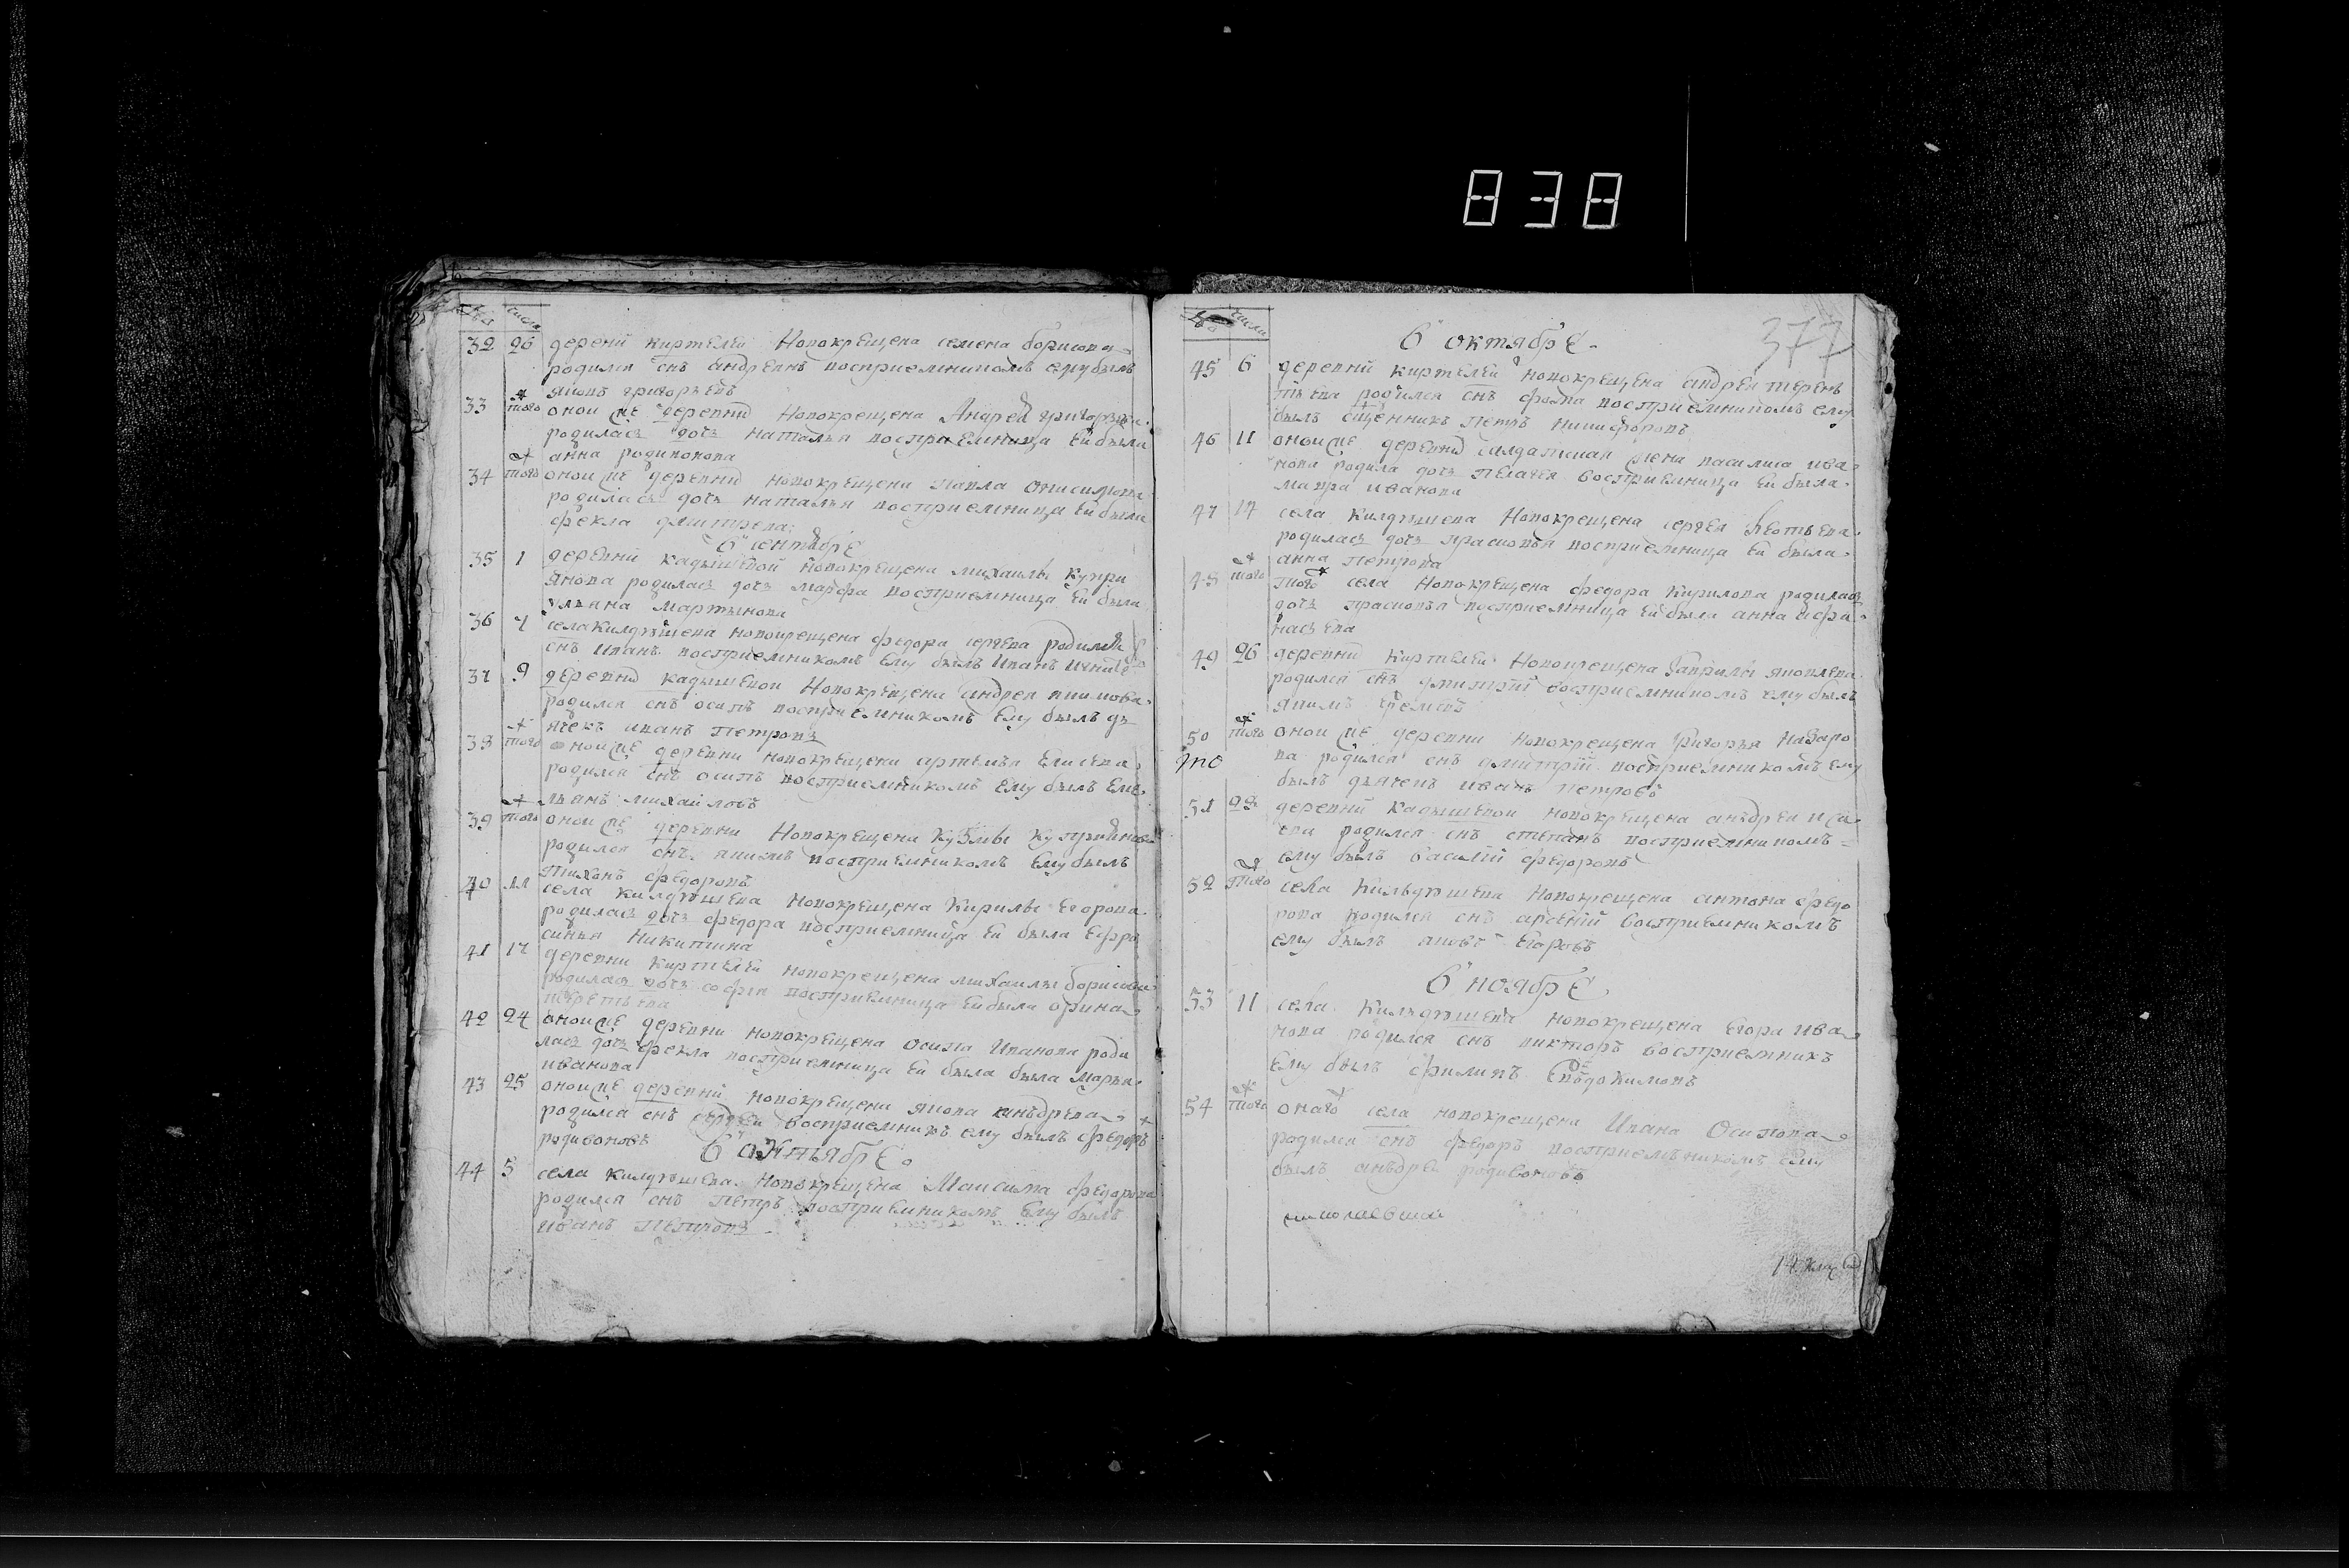 838
числа
32 26 деревни киртелей новокрещена семена борисова
родился снъ андреанъ восприемникомъ ему былъ
яковъ григорьевъ
33 того оной же деревни новокрещена Андрея григорьева
родилась дочь наталья восприемница ей была
анна родионова
34 того оной же деревни новокрещена павла онисимова
родилась дочь наталья восприемница ей была
фекла дмитрева
в сентябре
35 1 деревни кадышевой новокрещена михаилы купри
янова родилась дочь марфа восприемница ей была
ульяна мартынова
36 7 села килдюшева новокрещена федора сергева родился
снъ иванъ восприемникомъ ему былъ иванъ
37 9 деревни кадышевой новокрещена андрея акимова
родился снъ осипъ восприемникомъ ему былъ дь
ячекъ иванъ петровъ
38 того оной же деревни новокрещена артемья елисева
родился снъ осипъ восприемникомъ ему былъ еме
льянъ михайловъ
39 того оной же деревни новокрещена кузмы куприянова
родился снъ акимъ восприемникомъ ему былъ
тихонъ федоровъ
40 11 села килдюшева новокрещена кирилы егорова
родилась дочь федора восприемница ей была ефро
синья никитина
41 17 деревни киртелей новокрещена михаилы борисова
родилась дочь софья восприемница ей была орина
42 24 оной же деревни новокрещена осипа иванова роди
лась дочь фекла восприемница ей была была марья
иванова
43 25 оной же деревни новокрещена якова анъдрева
родился снъ сергей восприемникъ ему былъ федоръ
родивоновъ
в октябре
44 5 села килдюшева новокрещена максима федорова
родился снъ петръ восприемникомъ ему былъ
иванъ петровъ
числа
377
в октябре
45 6 деревни киртелей новокрещена андрея терень
тьева родился снъ фома восприемникомъ ему
былъ сщенникъ петръ никифоровъ
46 11 оной же деревни салдатская жена василиса ива
нова родила дочь пелагея восприемница ей была
мавра иванова
47 17 села килдюшева новокрещена сергея
родилась дочь прасковья восприемница ей была
анна петрова
48 того того села новокрещена федора кирилова родилась
дочь прасковья восприемница ей была анна афа
насьева
49 26 деревни киртелей новокрещена гаврилы яковлева
родился снъ дмитрий восприемникомъ ему былъ
акимъ
50 того оной же деревни новокрещена григорья назаро
ва родился снъ дмитрий восприемникомъ ему
былъ дьячекъ иванъ петровъ
51 28 деревни кадышевой новокрещена анъдрея иса
ева родился снъ степанъ восприемникомъ
ему былъ василий федоровъ
52 того села кильдюшева новокрещена антона федо
рова родился снъ арсений восприемникомъ
ему былъ яковъ егоровъ
в ноябре
53 11 села килъдюшева новокрещена егора ива
нова родился снъ викторъ восприемникъ
ему былъ филипъ евдокимовъ
54 того онаго села новокрещена ивана осипова
родился снъ федоръ восприемъникомъ ему
былъ анъдрей родивоновъ